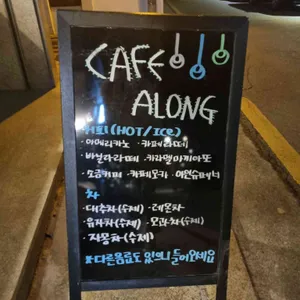 CAFE
ALONG
커피(HOT/ICE)
·아메리카노 ·카페라떼
·바닐라라떼 ·카라멜마끼아또
·소금커피 ·카페모카 ·아인슈페너
차
·대추차(수제) ·레몬차
·유자차(수제) ·모과차(수제)
·자몽차(수제)
*다른음료도 있으니 들어오세요